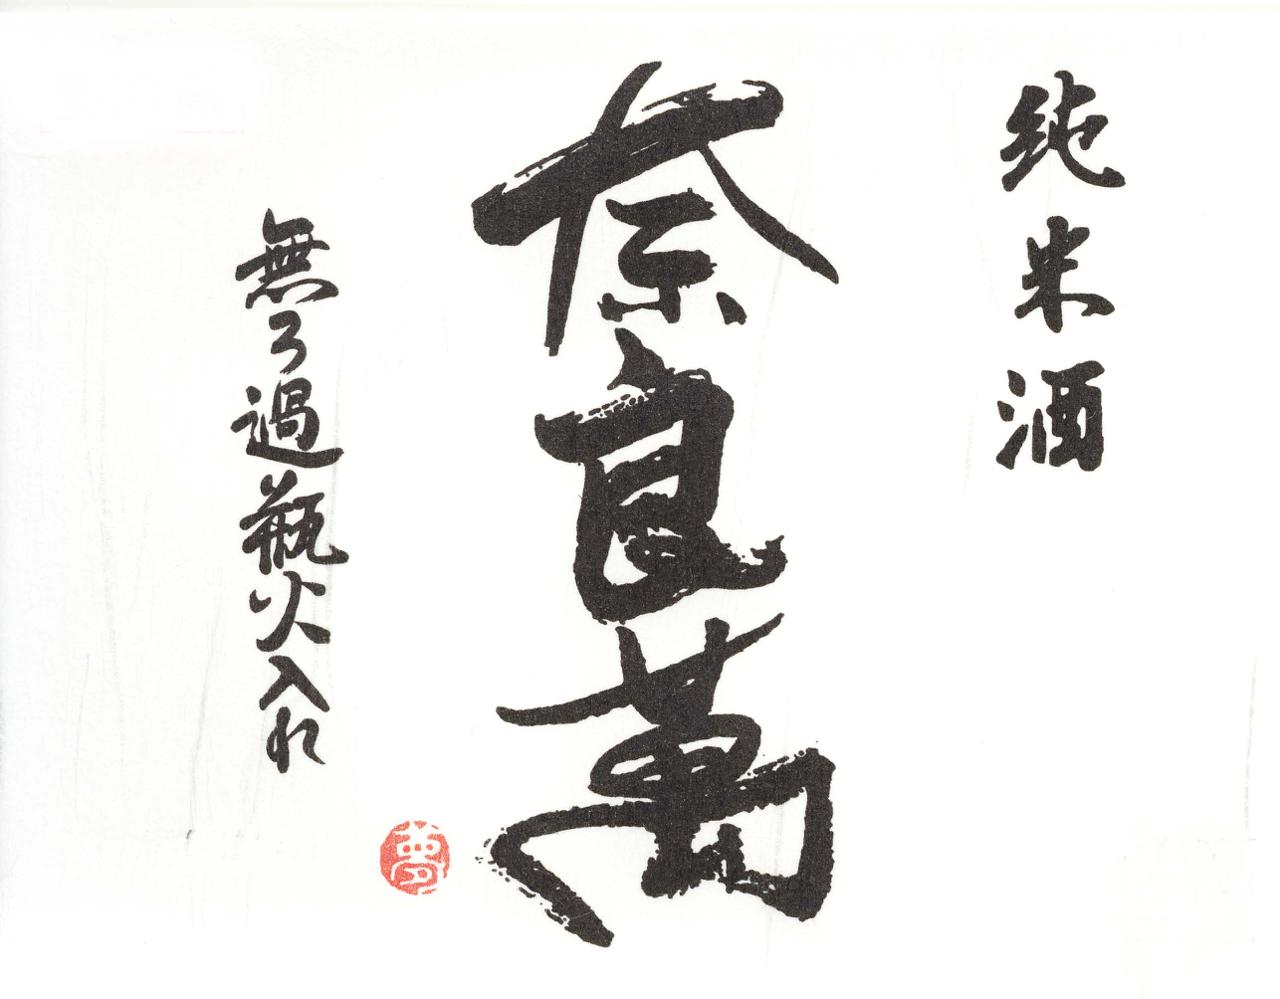 純米酒
奈良萬
無ろ過瓶火入れ
夢